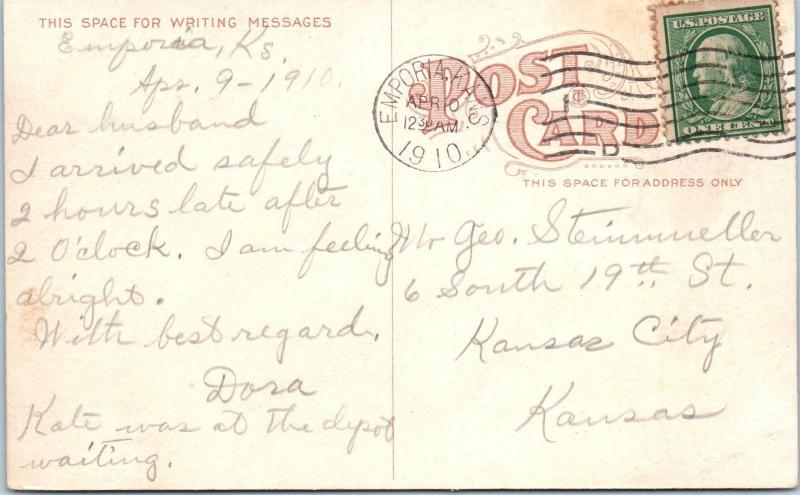 THIS SPACE FOR WRITING MESSAGES
Emporia, Ks.
Apr. 9-1910.
Dear husband
I arrived safely
2 hours late after
2 O'clock. I am feeling
alright.
With best regard,
Dora
Kate was at the depot
waiting.
POST
CARD
EMPORIA, KANS
APR 10
1230AM
1910
U.S. POSTAGE
ONE CENT
THIS SPACE FOR ADDRESS ONLY
Mr Geo. Steinmueller
6 South 19th St.
Kansas City
Kansas